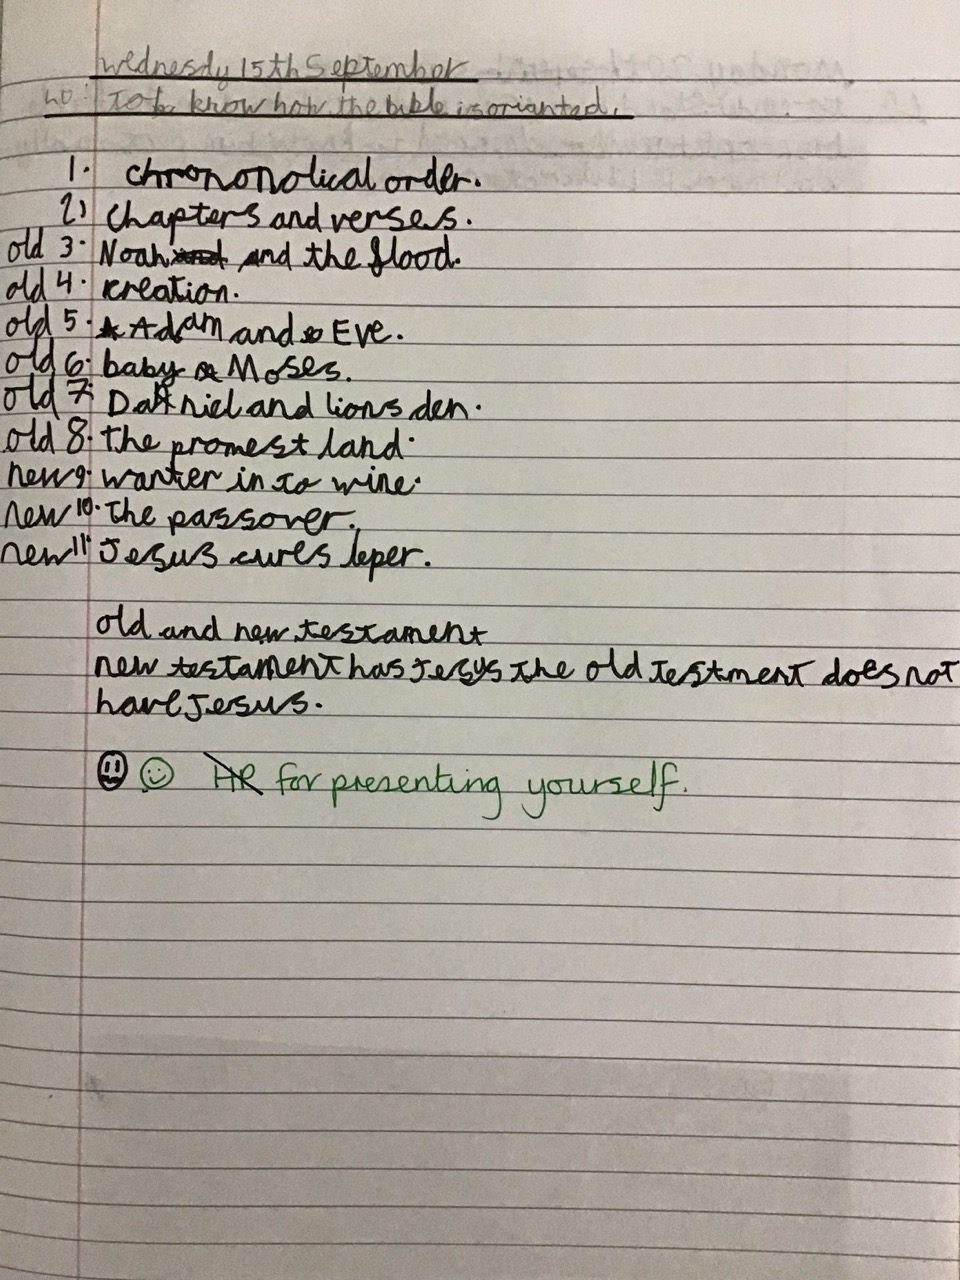 Wednesdy 15th September
LO: To k know how the bible is orianted.
1. chrononolical order.
2) Chapters and verses.
old 3. Noah and the flood.
old 4. creation.
old 5. Adam and Eve.
old 6. baby Moses.
old 7. Daniel and lions den.
old 8. the promest land.
new 9. wanter in to wine.
new 10. the passover.
new 11. Jesus cures leper.
old and new testament
new testament has Jesys the old testment does not
have Jesus.
HR for presenting yourself.